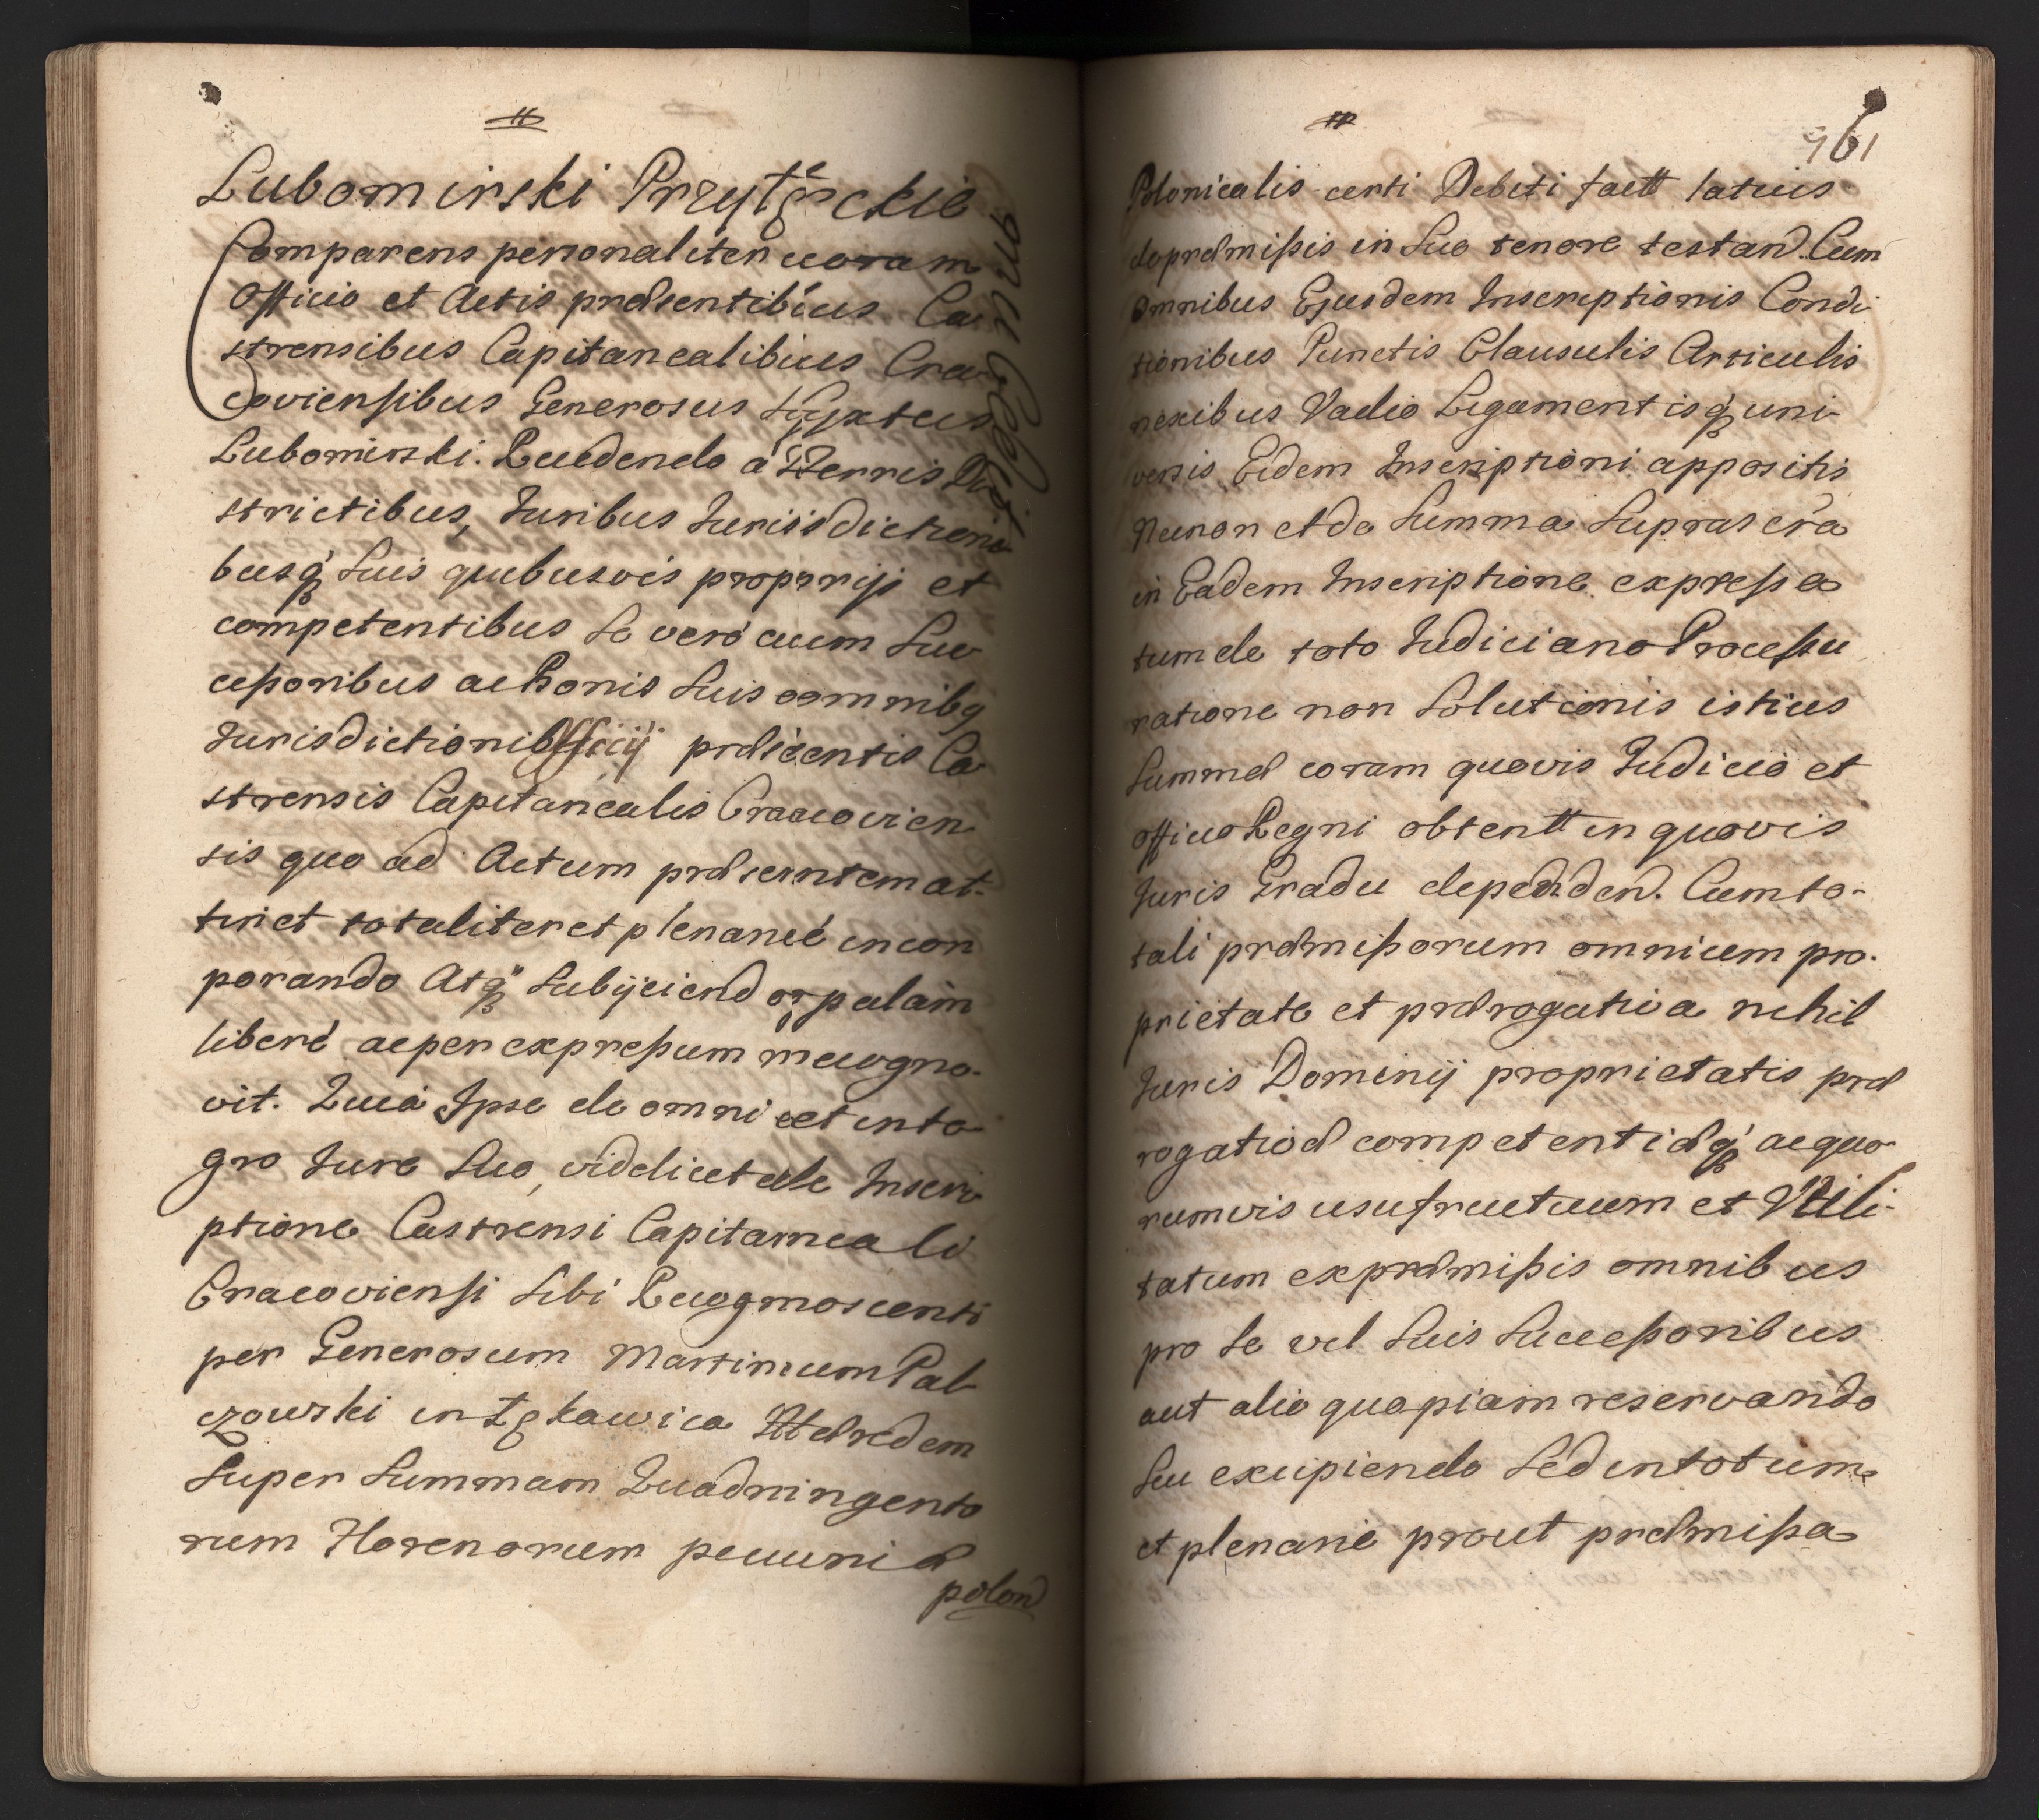 Lubomirski Przyłęckie
Comparens personaliter coram
Officio et Actis præsentibus Ca
strensibus Capitanealibus Cra
coviensibus Generosus Sixtus
Lubomirski. Recedendo à Terris Di
strictibus, Juribus Jurisdictioni
busq₃ Suis quibusvis proprijs et
competentibus Se verò cum Suc
cessoribus ac Bonis Suis omnibq
Jurisdictioni Officij præsentis Ca
strensis Capitanealis Cracovien
sis quo ad Actum præsentem at-
tinet totaliter et plenariè incor
porando Atq₃ Subijciend palàm
liberè ac per expressum recogno-
vit. Quia Ipse de omni et inte
gro Jure Suo, videlicet de Inscri
ptione Castrensi Capitaneali
Cracoviensi Sibi Recognoscenti
per Generosum Martinum Pal
czowski in Łękawica Hæredem
Super Summam Quadringento
rum Florenorum pecuniæ
polon
961
Polonicalis certi Debiti factt latius
de præmissis in Suo tenore testand. Cum
omnibus Ejusdem Inscriptionis Condi
tionibus Punctis Clausulis Articulis
nexibus Vadio Ligamentisq₃ uni-
versis Eidem Inscriptioni appositis
Necnon et de Summa Suprascra
in Eadem Inscriptione expressa
tum de toto Judiciario Processu
ratione non Solutionis istius
Summæ coram quovis Judicio et
officio Regni obtentt in quovis
Juris Gradu dependen. Cum to-
tali præmissorum omnium pro-
prietate et prærogativa nihil
Juris Dominij proprietatis præ
rogativæ competentiæq₃ ac quo-
rumvis usufructuum et Utili-
tatum ex præmissis omnibus
pro Se vel Suis Successoribus
aut alio quopiam reservando
Seu excipiendo Sed in totum
et plenarie prout præmissa